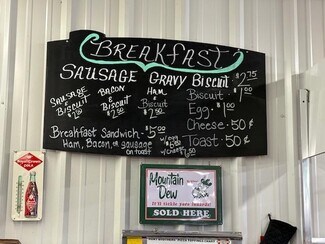 BREAKFAST
SAUSAGE GRAVY BISCUIT - $2.75
SAUSAGE & BISCUIT $2.50
BACON & BISCUIT $2.50
HAM & BISCUIT $2.50
BISCUIT - $1.00
EGG - $1.00
CHEESE - 50¢
TOAST - 50¢
BREAKFAST SANDWICH - $5.00
HAM, BACON, OR SAUSAGE
ON TOAST
ROYAL CROWN
COLA
Mountain
Dew
It'll tickle yore innards!
SOLD HERE